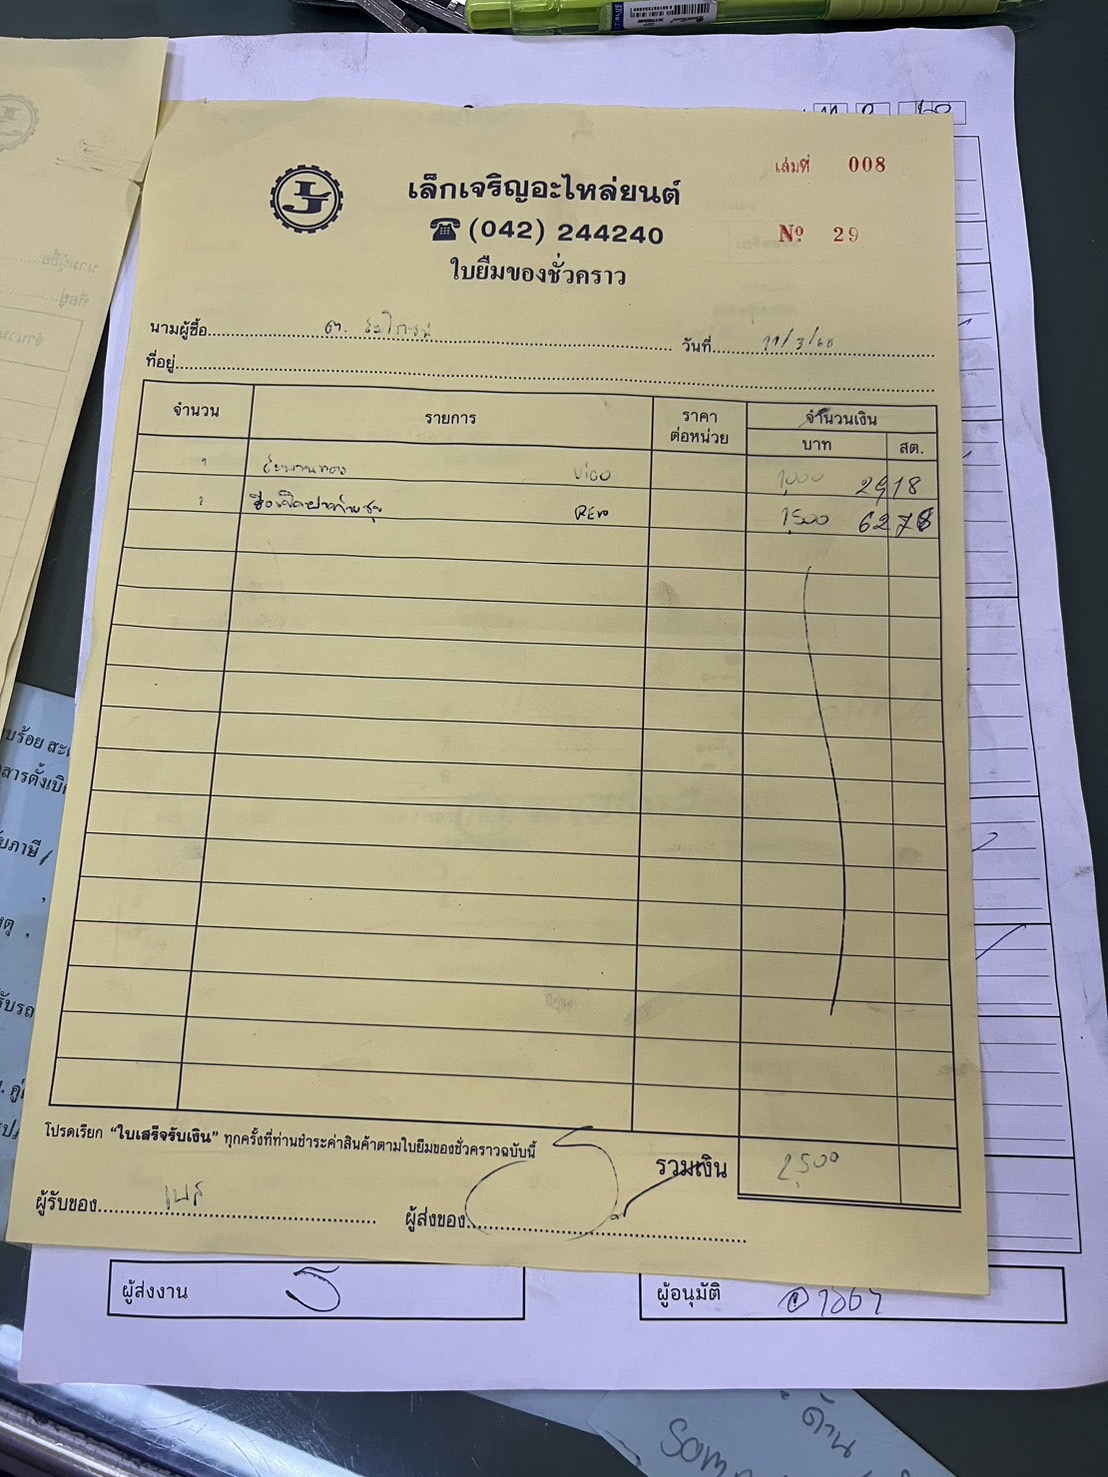 เล่มที่ 008
เล็กเจริญอะไหล่ยนต์
(042) 244240
Nº 29
ใบยืมของชั่วคราว
นามผู้ซื้อ
วันที่ 11/3/68
ที่อยู่
จำนวน รายการ ราคาต่อหน่วย จำนวนเงิน
บาท สต.
1 สะพานทอง VIGO 1,000 2918
1 REVO 1,500 6278
โปรดเรียก “ใบเสร็จรับเงิน” ทุกครั้งที่ท่านชำระค่าสินค้าตามใบยืมของชั่วคราวฉบับนี้
รวมเงิน 2,500
ผู้รับของ เบส
ผู้ส่งของ
ผู้ส่งงาน
ผู้อนุมัติ
ด้าน